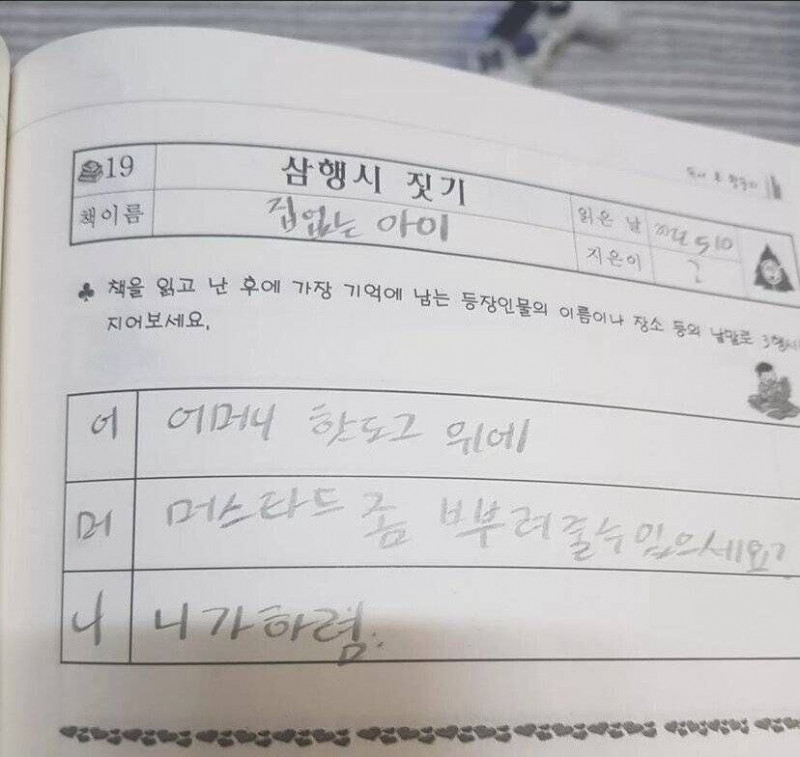 19 삼행시 짓기
책이름 집없는 아이
읽은 날
지은이 ?
♣ 책을 읽고 난 후에 가장 기억에 남는 등장인물의 이름이나 장소 등의 낱말로 3행시
지어보세요.
어 어머니 핫도그 위에
머 머스타드 좀 뿌부려줄수있으세요?
니 니가하렴.